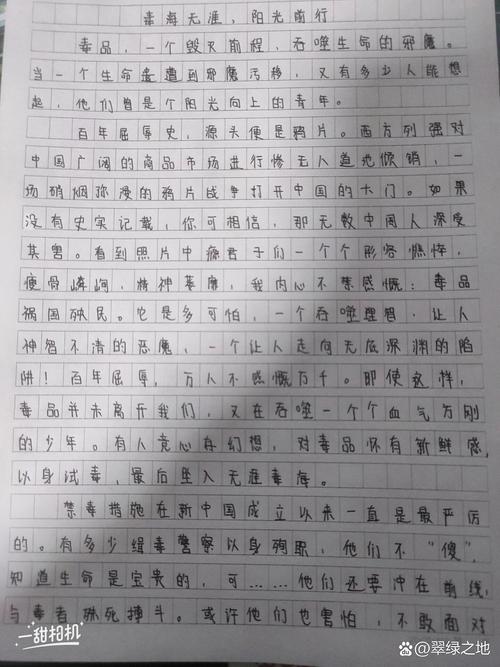 毒海无涯，阳光前行
毒品，一个毁灭前程，吞噬生命的邪魔。
当一个生命遭遭到邪魔污秽，又有多少人能想
起，他们曾是个阳光向上的青年。
百年屈辱史，源头便是鸦片。西方列强对
中国广阔的商品市场进行惨无人道地倾销，一
场硝烟弥漫的鸦片战争打开中国的大门。如果
没有史实记载，你可相信，那无数中国人深受
其害。看到照片中瘾君子们一个个形容憔悴，
瘦骨嶙峋，精神萎靡，我内心不禁感慨：毒品
祸国殃民。它是多可怕，一个吞噬理智，让人
神智不清的恶魔，一个让人走向无底深渊的陷
阱！百年屈辱，万人不感慨万千。即使这样，
毒品并未离开我们，又在吞噬一个个血气方刚
的少年。有人竟心存幻想，对毒品怀有新鲜感，
以身试毒，最后坠入无涯毒海。
禁毒措施在新中国成立以来一直是最严厉
的。有多少缉毒警察以身殉职，他们不“傻”，
知道生命是宝贵的，可……他们还要冲在前线，
与毒者殊死搏斗。或许他们也害怕，不敢面对
一甜相机
百度@翠绿之地